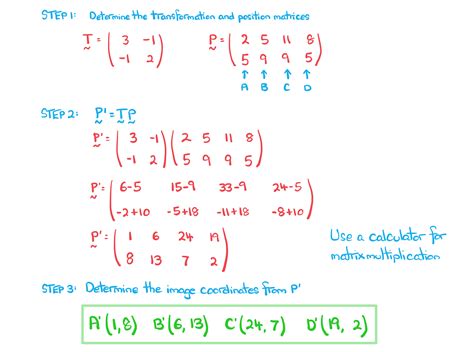 STEP 1: Determine the transformation and position matrices
T = ( 3 -1 P = ( 2 5 11 8
-1 2 ) 5 9 9 5 )
↑ ↑ ↑ ↑
A B C D
STEP 2: P' = TP
P' = ( 3 -1 ) ( 2 5 11 8
-1 2 ) ( 5 9 9 5 )
P' = ( 6-5 15-9 33-9 24-5
-2+10 -5+18 -11+18 -8+10 )
P' = ( 1 6 24 19
8 13 7 2 )
Use a calculator for
matrix multiplication
STEP 3: Determine the image coordinates from P'
A'(1,8) B'(6,13) C'(24,7) D'(19, 2)